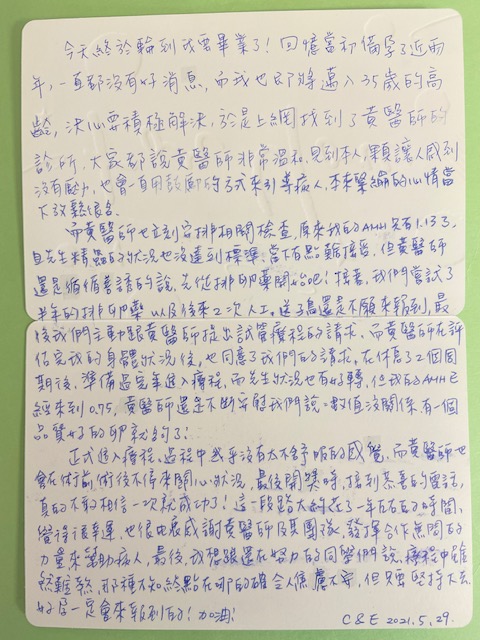 今天終於輪到我要畢業了！回憶當初備孕了近兩
年，一直都沒有好消息，而我也即將邁入35歲的高
齡，決心要積極解決，於是上網找到了黃醫師的
診所，大家都說黃醫師非常溫和，見到本人，果讓人感到
沒有壓力，也會一直用鼓勵的方式來引導病人，本來緊繃的心情當
下放鬆很多。
而黃醫師也立刻安排相關檢查，原來我的AMH只有1.13了，
且先生精蟲的狀況也沒達到標準，當下有點難接受，但黃醫師
還是循循善誘的說，先從排卵藥開始吧！接著，我們嘗試了
半年的排卵藥以及後來2次人工，送子鳥還是不願來報到，最
後我們主動跟黃醫師提出試管療程的請求，而黃醫師在評
估完我的身體狀況後，也同意了我們的請求。在休息2個周
期後，準備過完年進入療程，而先生狀況也有好轉，但我的AMH已
經來到0.75，黃醫師還是不斷安慰我們說：數值沒關係，有一個
品質好的卵就夠了！
正式進入療程，過程中幾乎沒有太不舒服的感覺，而黃醫師也
會在術前、術後不停來關心狀況，最後開獎時，接到恭喜的電話，
真的不敢相信一次就成功了！這一段路大約花了一年左右的時間，
覺得很幸運，也很由衷感謝黃醫師及其團隊，發揮合作無間的
力量來幫助病人，最後，我想跟還在努力的同學們說，療程中雖
然艱辛，那種不知終點在哪的確令人焦慮不安，但只要堅持下去，
好孕一定會來報到的！加油！
C & E 2021.5.29.